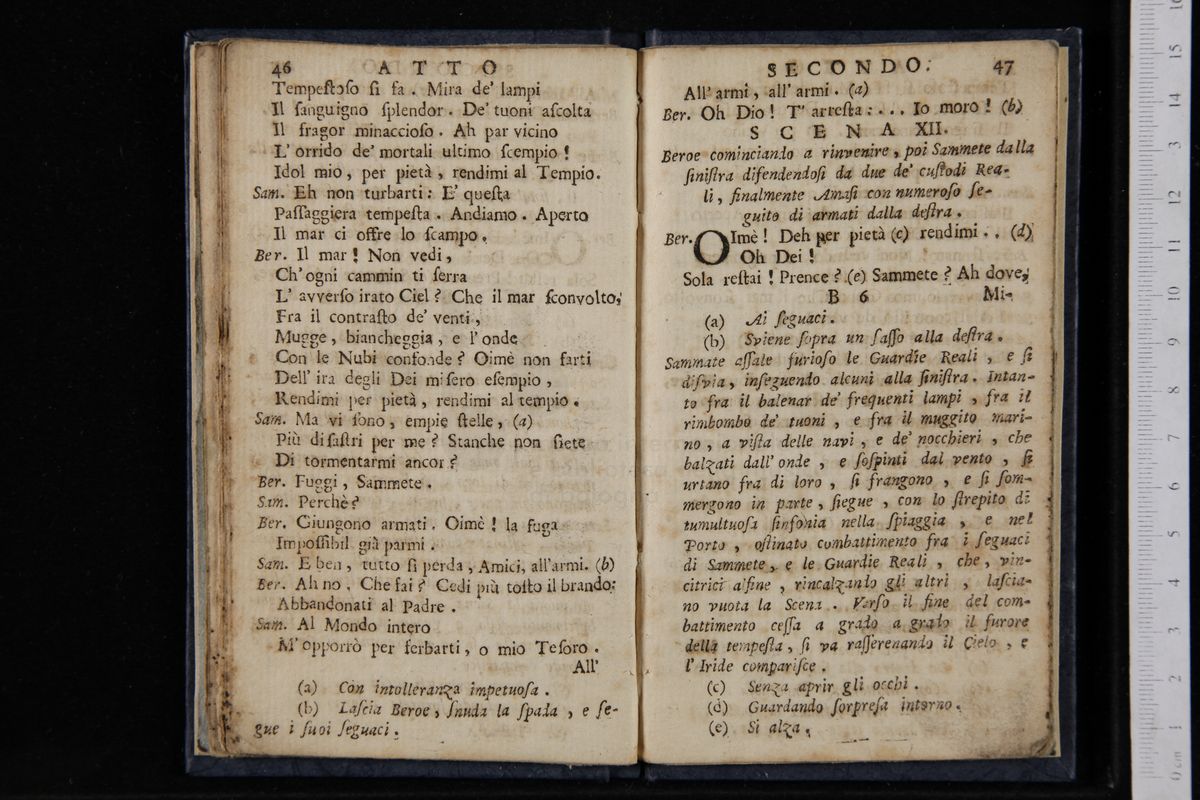 46 ATTO
Tempeſtoſo ſi fa. Mira de' lampi
Il ſanguigno ſplendor. De' tuoni aſcolta
Il fragor minaccioſo. Ah par vicino
L' orrido de' mortali ultimo ſcempio!
Idol mio, per pietà, rendimi al Tempio.
Sam. Eh non turbarti: E' queſta
Paſſaggiera tempeſta. Andiamo. Aperto
Il mar ci offre lo ſcampo.
Ber. Il mar! Non vedi,
Ch' ogni cammin ti ſerra
L' avverſo irato Ciel? Che il mar ſconvolto,
Fra il contraſto de' venti,
Mugge, biancheggia, e l' onde
Con le Nubi confonde? Oimè non farti
Dell' ira degli Dei miſero eſempio,
Rendimi per pietà, rendimi al tempio.
Sam. Ma vi ſono, empie ſtelle, (a)
Più diſaſtri per me? Stanche non ſiete
Di tormentarmi ancor?
Ber. Fuggi, Sammete.
Sam. Perchè?
Ber. Giungono armati. Oimè! la fuga
Impoſſibil già parmi.
Sam. E ben, tutto ſi perda, Amici, all'armi. (b)
Ber. Ah no. Che fai? Cedi più toſto il brando:
Abbandonati al Padre.
Sam. Al Mondo intero
M' opporrò per ſerbarti, o mio Teſoro.
All'
(a) Con intolleranza impetuoſa.
(b) Laſcia Beroe, ſnuda la ſpada, e ſe-
gue i ſuoi ſeguaci.
SECONDO. 47
All' armi, all' armi. (a)
Ber. Oh Dio! T' arreſta:... Io moro! (b)
SCENA XII.
Beroe cominciando a rinvenire, poi Sammete dalla
ſiniſtra difendendoſi da due de' cuſtodi Rea-
li, finalmente Amaſi con numeroſo ſe-
guito di armati dalla deſtra.
Ber. OImè! Deh per pietà (c) rendimi.. (d)
Oh Dei!
Sola reſtai! Prence? (e) Sammete? Ah dove,
B 6 Mi-
(a) Ai ſeguaci.
(b) Sviene ſopra un ſaſſo alla deſtra.
Sammate aſſale furioſo le Guardie Reali, e ſi
diſvia, inſeguendo alcuni alla ſiniſtra. Intan-
to fra il balenar de' frequenti lampi, fra il
rimbombo de' tuoni, e fra il muggito mari-
no, a viſta delle navi, e de' nocchieri, che
balzati dall' onde, e ſoſpinti dal vento, ſi
urtano fra di loro, ſi frangono, e ſi ſom-
mergono in parte, ſiegue, con lo ſtrepito di
tumultuoſa ſinfonia nella ſpiaggia, e nel
Porto, oſtinato combattimento fra i ſeguaci
di Sammete, e le Guardie Reali, che, vin-
citrici alfine, rincalzando gli altri, laſcia-
no vuota la Scena. Verſo il fine del com-
battimento ceſſa a grado a grado il furore
della tempeſta, ſi va raſſerenando il Cielo, e
l' Iride compariſce.
(c) Senza aprir gli occhi.
(d) Guardando ſorpreſa intorno.
(e) Si alza.
0 cm 1 2 3 4 5 6 7 8 9 10 11 12 13 14 15 16